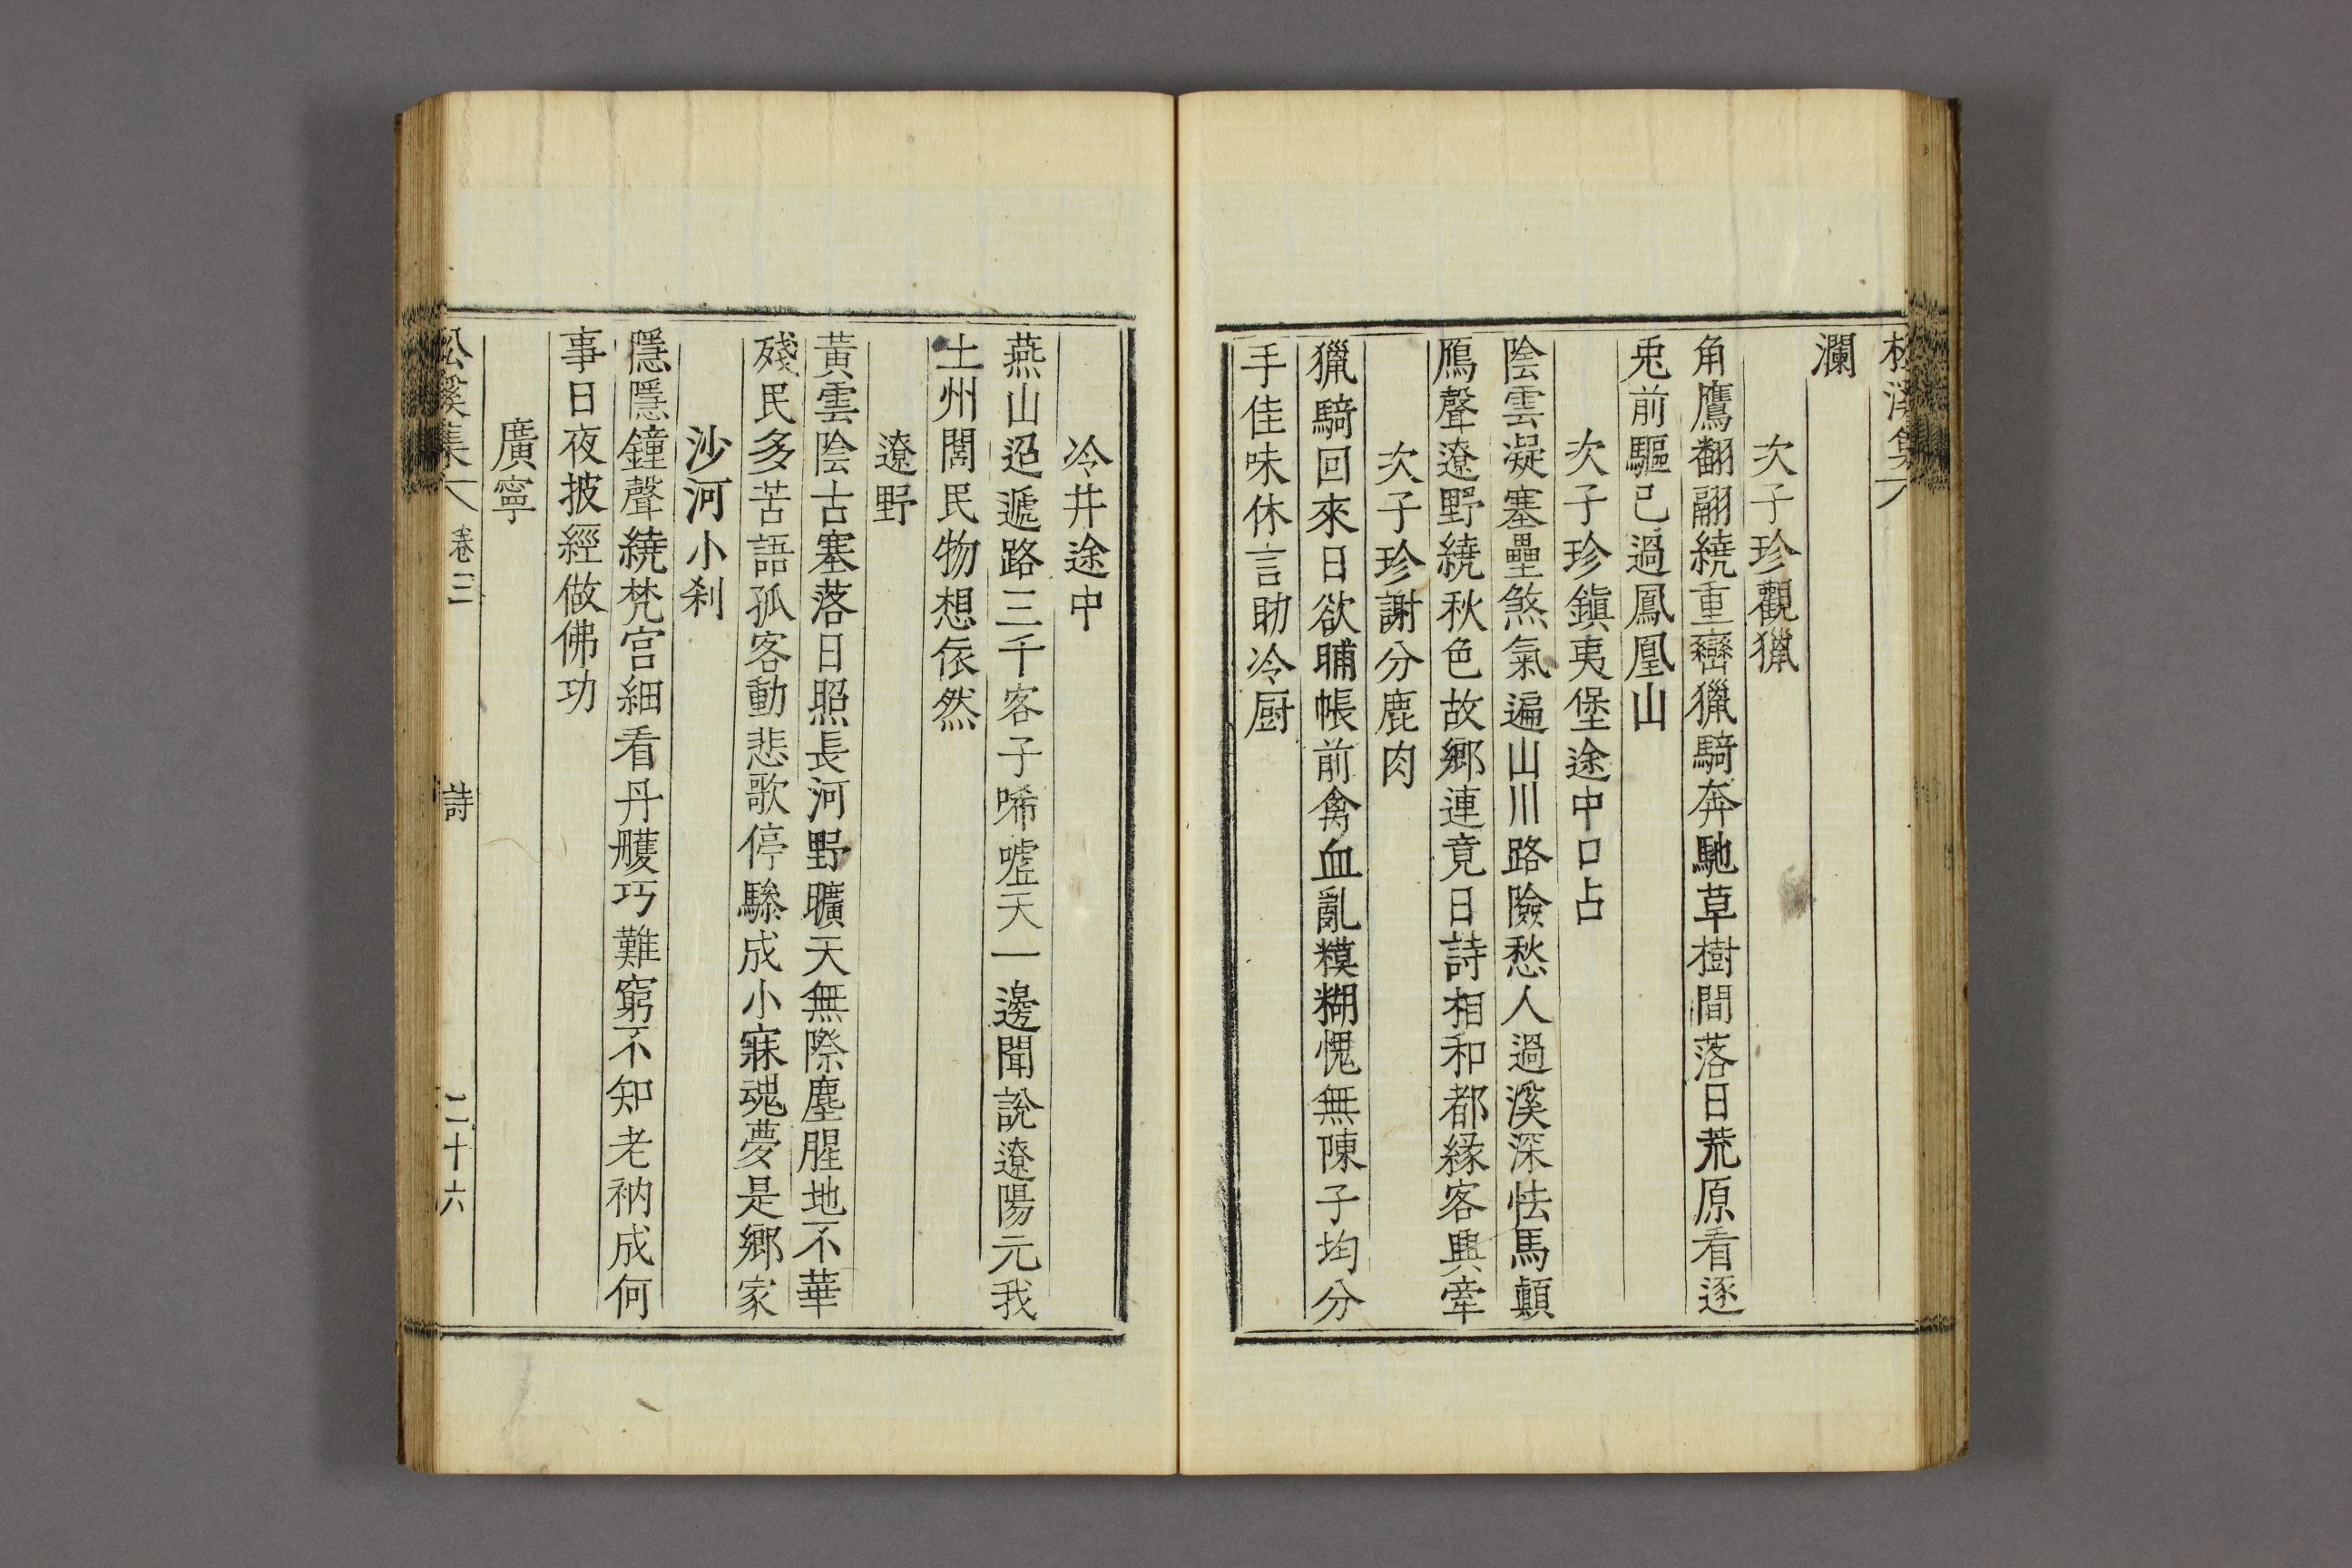 松溪集
瀾
次子珍觀獵
角鷹翻翮繞重巒獵騎奔馳草樹間落日荒原看逐
兎前驅已過鳳凰山
次子珍鎭夷堡途中口占
陰雲凝塞壘煞氣遍山川路險愁人過溪深怯馬顚
鴈聲遼野繞秋色故鄕連竟日詩相和都緣客興牽
次子珍謝分鹿肉
獵騎回來日欲晡帳前禽血亂糢糊愧無陳子均分
手佳味休言助冷厨
冷井途中
燕山迢遞路三千客子唏噓天一邊聞說遼陽元我
土州閭民物想依然
遼野
黃雲陰古塞落日照長河野曠天無際塵腥地不華
殘民多苦語孤客動悲歌停驂成小寐魂夢是鄕家
沙河小刹
隱隱鐘聲繞梵宮細看丹雘巧難窮不知老衲成何
事日夜披經做佛功
廣寧
松溪集 卷三 詩 二十六